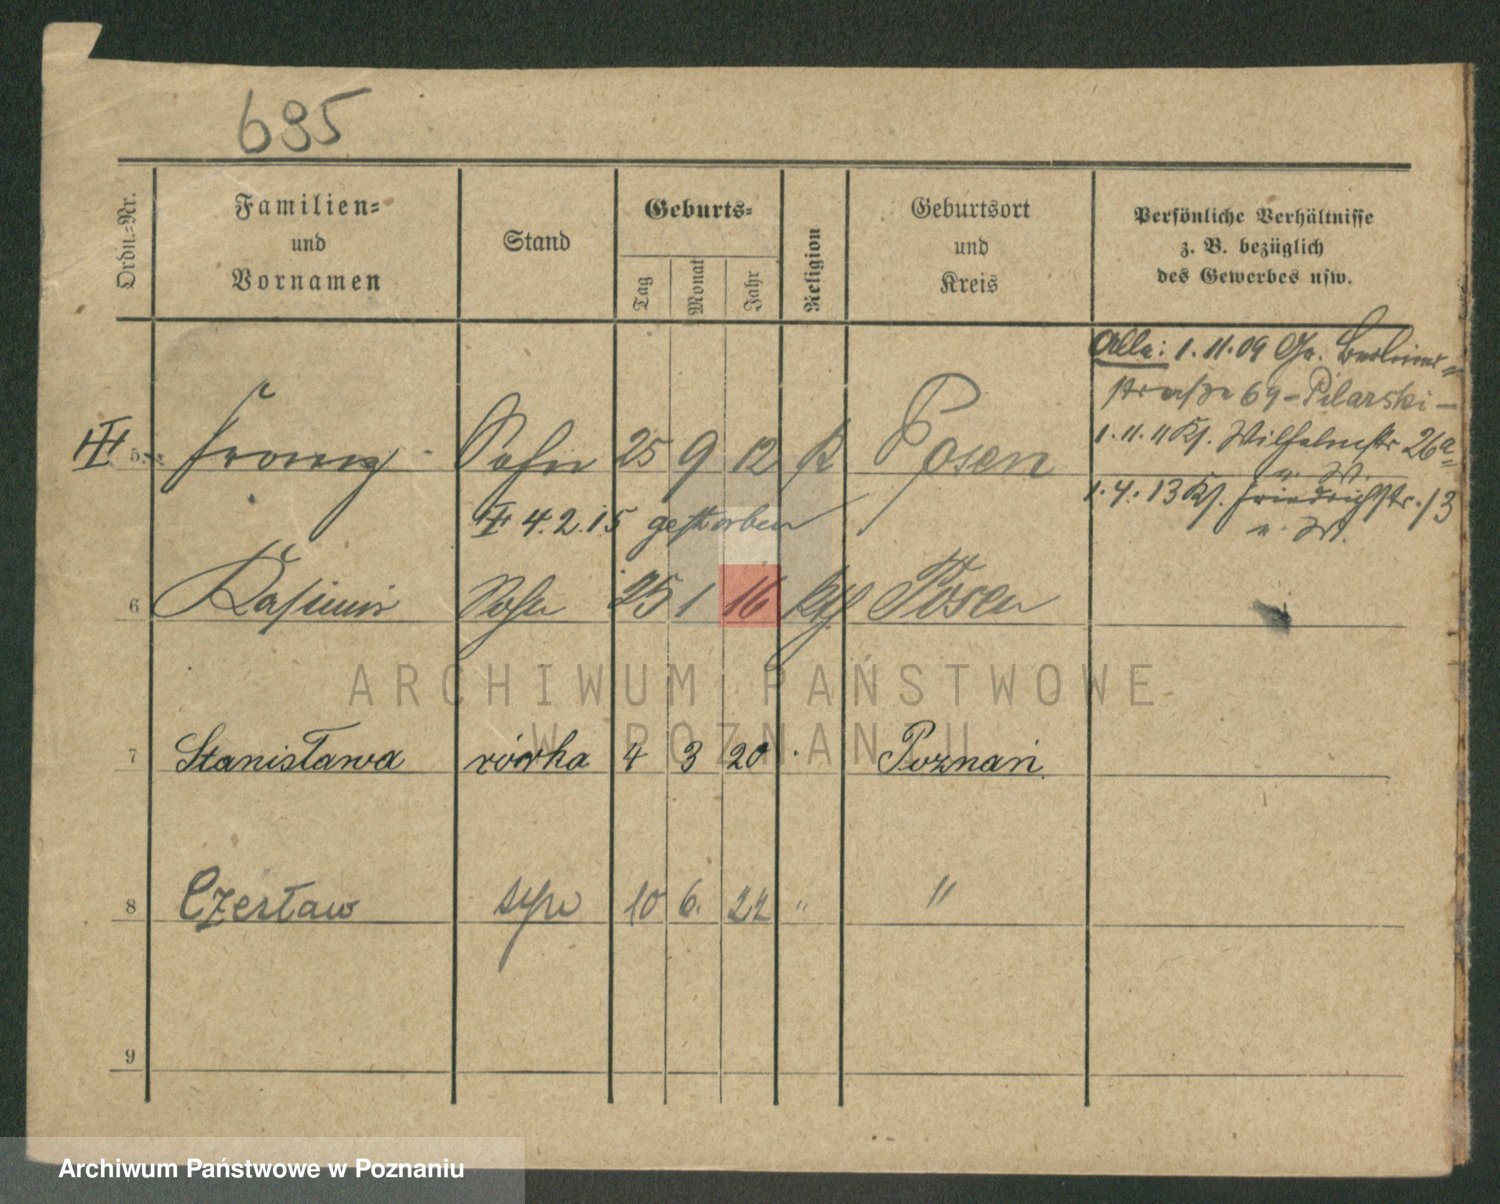 695
Ordn.=Nr.
Familien=
und
Vornamen
Stand
Geburts=
Tag
Monat
Jahr
Religion
Geburtsort
und
Kreis
Persönliche Verhältnisse
z. B. bezüglich
des Gewerbes usw.
Alle: 1.11.09 Gr. Berliner=
straße 69 - Pilarski -
1.11.11 Kf. Wilhelmstr 26a
u. W.
1.4.13 Kf. Friedrichstr. 13
u. W.
5 Franz Sohn 25 9 12 K Posen
4.2.15 gestorben
6 Kasimir Sohn 25 1 16 Kth Posen
7 Stanisława córka 4 3 20 Poznań
8 Czesław syn 10 6. 22 " "
9
ARCHIWUM PAŃSTWOWE
W POZNANIU
Archiwum Państwowe w Poznaniu